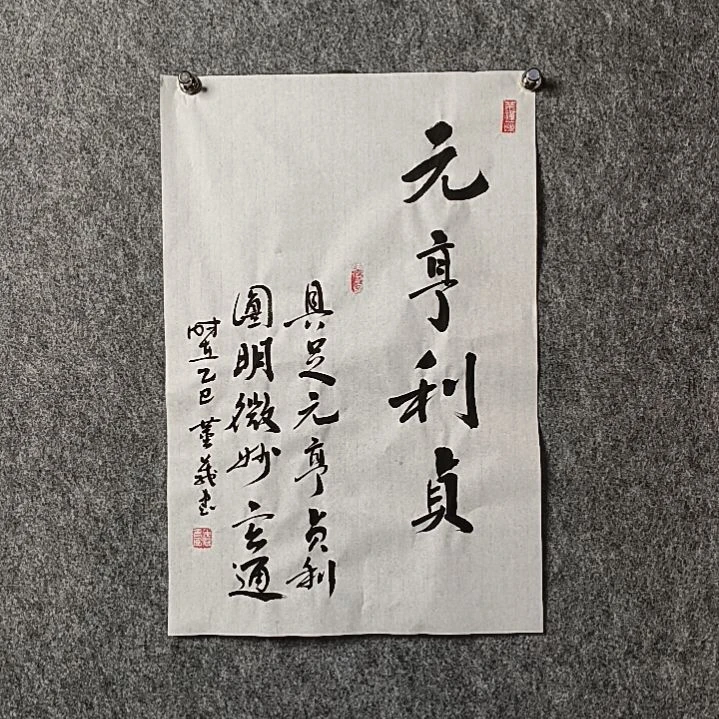 元亨利貞
具足元亨贞利
圓明微妙玄通
时在乙巳 董義书